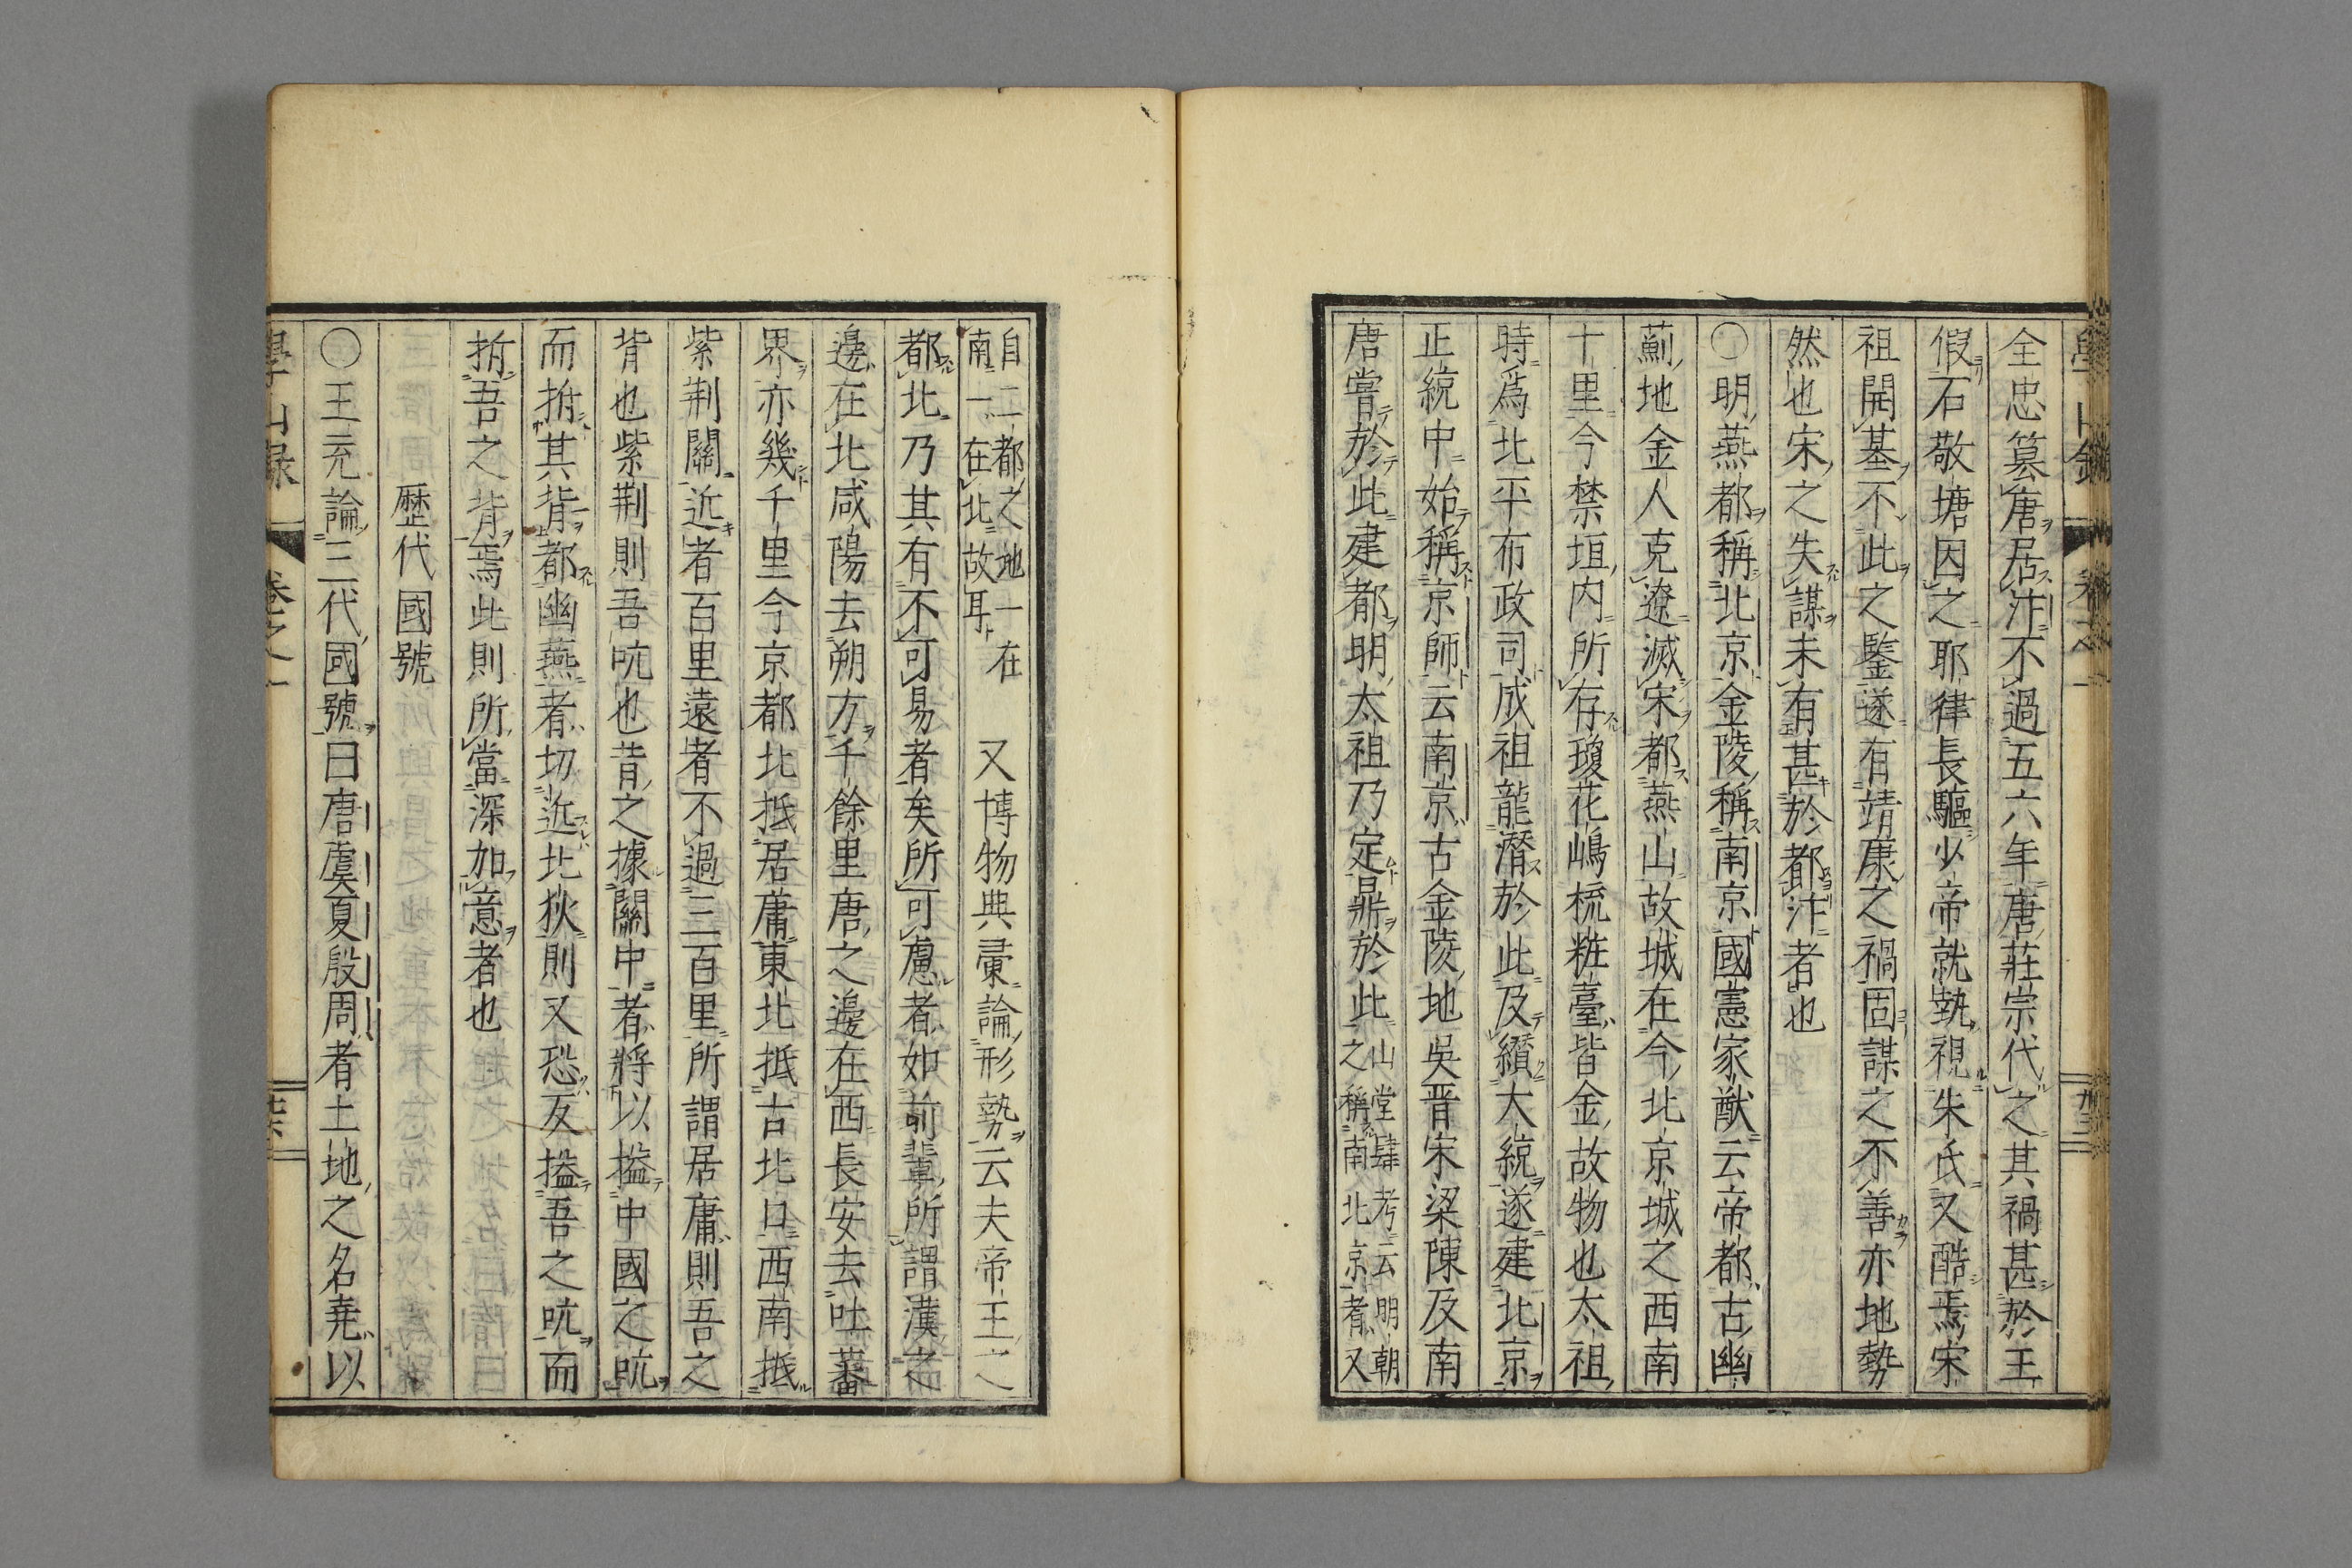 全忠篡唐居汴不過五六年唐莊宗代之其禍甚於王
假石敬塘因之耶律長驅少帝就執視朱氏又酷焉宋
祖開基不此之鑒遂有靖康之禍固謀之不善亦地勢
然也宋之失謀未有甚於都汴者也
〇明燕都稱北京金陵稱南京國憲家猷云帝都古幽
薊地金人克遼滅宋都燕山故城在今北京城之西南
十里今禁垣内所存瓊花嶋梳粧臺皆金故物也太祖
時爲北平布政司成祖龍潛於此及纘大統遂建北京
正統中始稱京師云南京古金陵地吳晋宋梁陳及南
唐嘗於此建都明太祖乃定鼎於此山堂肆考云明朝
之稱南北京者又
自二都之地一在
南一在北故耳又博物典彙論形勢云夫帝王之
都北乃其有不可易者矣所可慮者如前輩所謂漢之
邊在北咸陽去朔方千餘里唐之邊在西長安去吐蕃
界亦幾千里今京都北抵居庸東北抵古北口西南抵
紫荆關近者百里遠者不過三百里所謂居庸則吾之
背也紫荆則吾吭也昔之據關中者將以搤中國之吭
而拊其背都幽燕者切近北狄則又恐反搤吾之吭而
拊吾之背焉此則所當深加意者也
歷代國號
〇王充論三代國號曰唐虞夏殷周者土地之名堯以